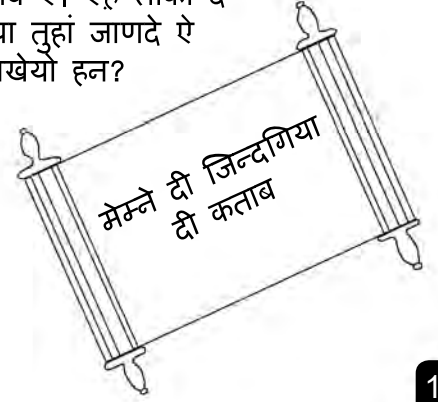 या तुहां जाणदे ऐ
खेयो हन?
मेम्ने दी जिन्दगिया
दी कताब
1